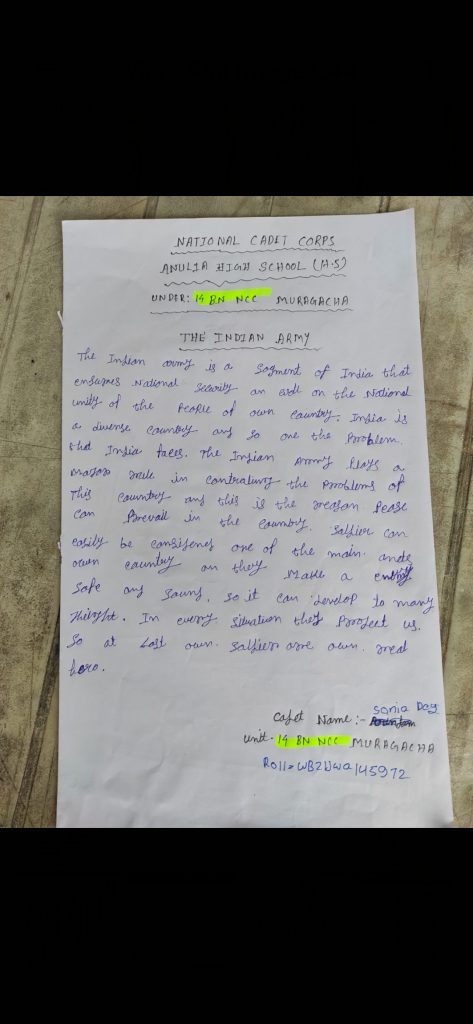 NATIONAL CADET CORPS
ANULIA HIGH SCHOOL (H.S)
UNDER: 14 BN NCC MURAGACHA
THE INDIAN ARMY
The Indian army is a Sagment of India that
ensures National Security an on the National
unity of the People of own Country. India is
a diverse Country and so are the Problem.
that India faces. The Indian Army Plays a
major role in controling the Problems of
This Country and this is the reason Pease
can Prevail in the Country. Saldier can
easily be considered one of the main
own Country as they Make a
Safe and Sound. So it can develop to many
Height. In every situation they Project us.
So at Last own Saldier are own real
hero.
Cadet Name :- Sonia Dey
Unit. 14 BN NCC MURAGACHA
Roll=